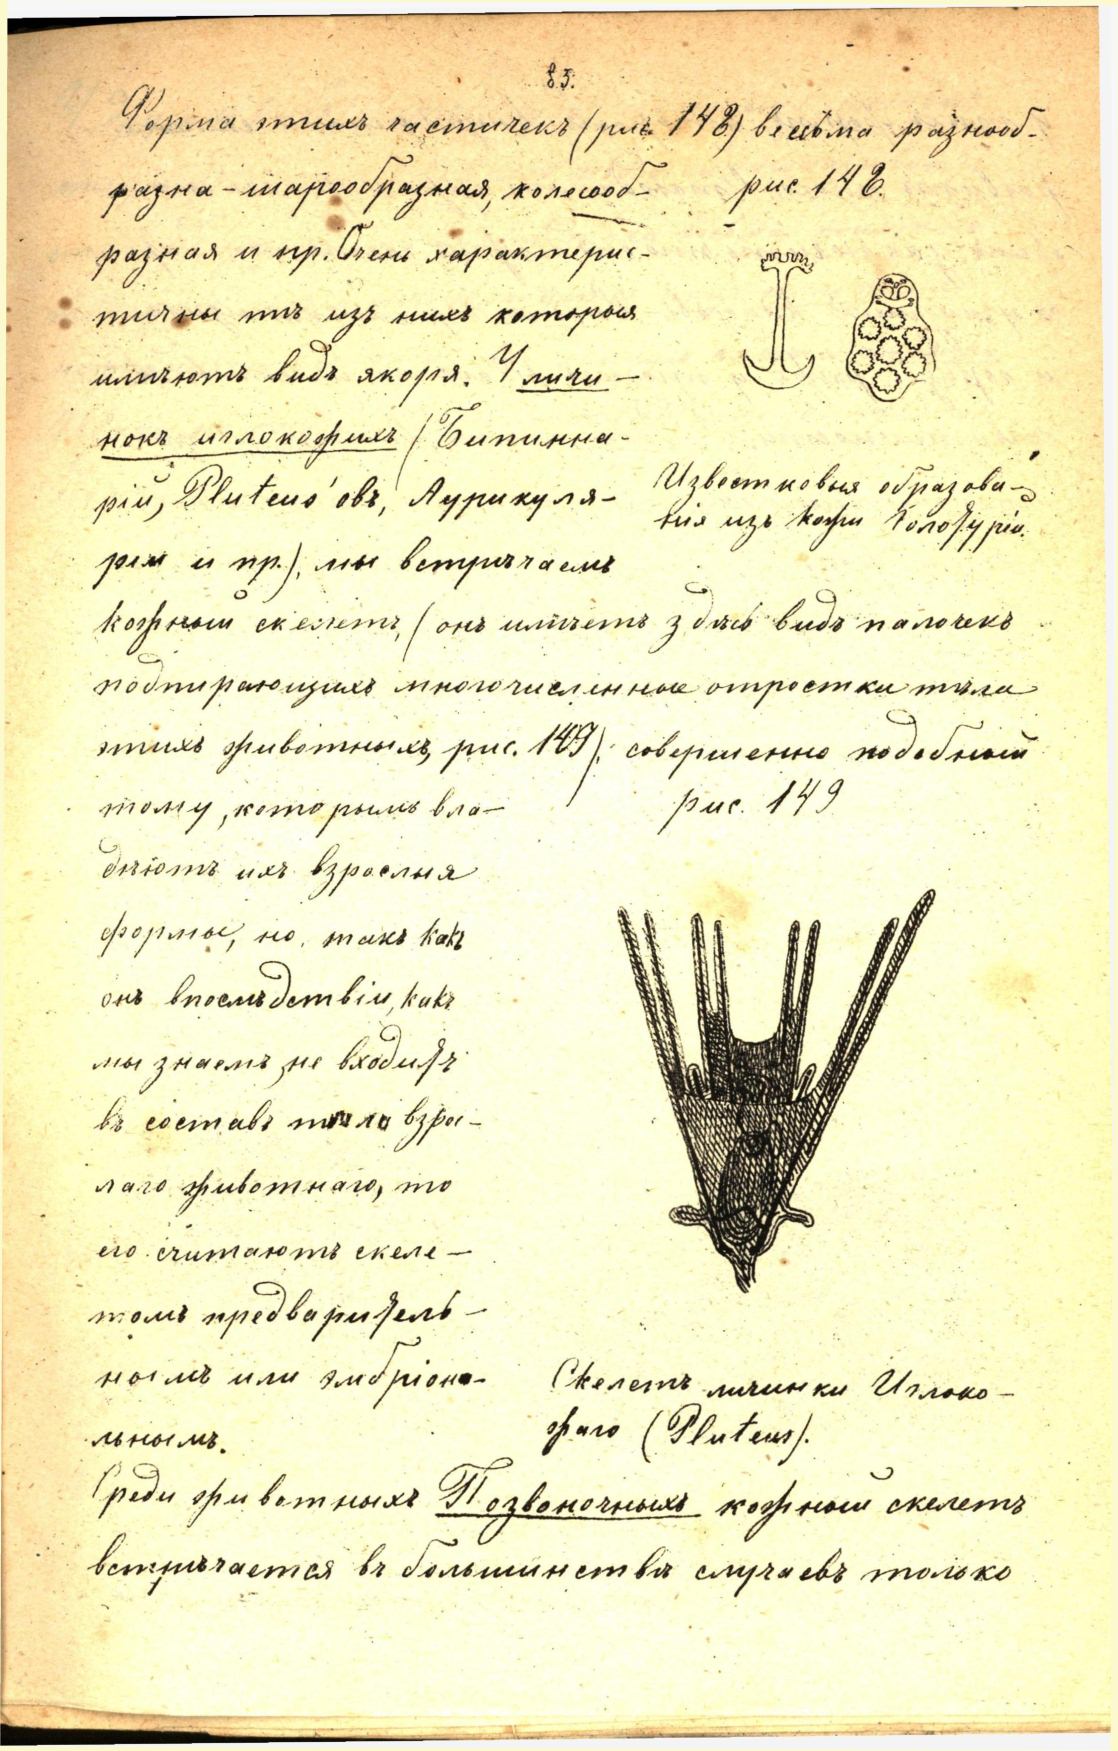 83.
Форма этихъ частичекъ (рис. 148) весьма разнооб-
разна - шарообразная, колесооб-
рис. 148.
разная и пр. Очень характерис-
тичны тѣ изъ нихъ которыя
имѣютъ видъ якоря. У личи-
нокъ иглокожихъ (Бипинна-
рій, Pluteus'овъ, Аурикуля-
рія и пр.), мы встрѣчаемъ
Известковыя образова-
нія изъ кожи Голотуріи.
кожный скелетъ, (онъ имѣетъ здѣсь видъ палочекъ
подпирающихъ многочисленные отростки тѣла
этихъ животныхъ, рис. 149), совершенно подобный
тому, которымъ вла-
рис. 149
дѣютъ ихъ взрослыя
формы, но, такъ какъ
онъ впослѣдствіи, какъ
мы знаемъ, не входитъ
въ составъ тѣла взрос-
лаго животнаго, то
его считаютъ скеле-
томъ предваритель-
нымъ или эмбріона-
льнымъ.
Скелетъ личинки Иглоко-
жаго (Pluteus).
Среди животныхъ Позвоночныхъ кожный скелетъ
встрѣчается въ большинствѣ случаевъ только